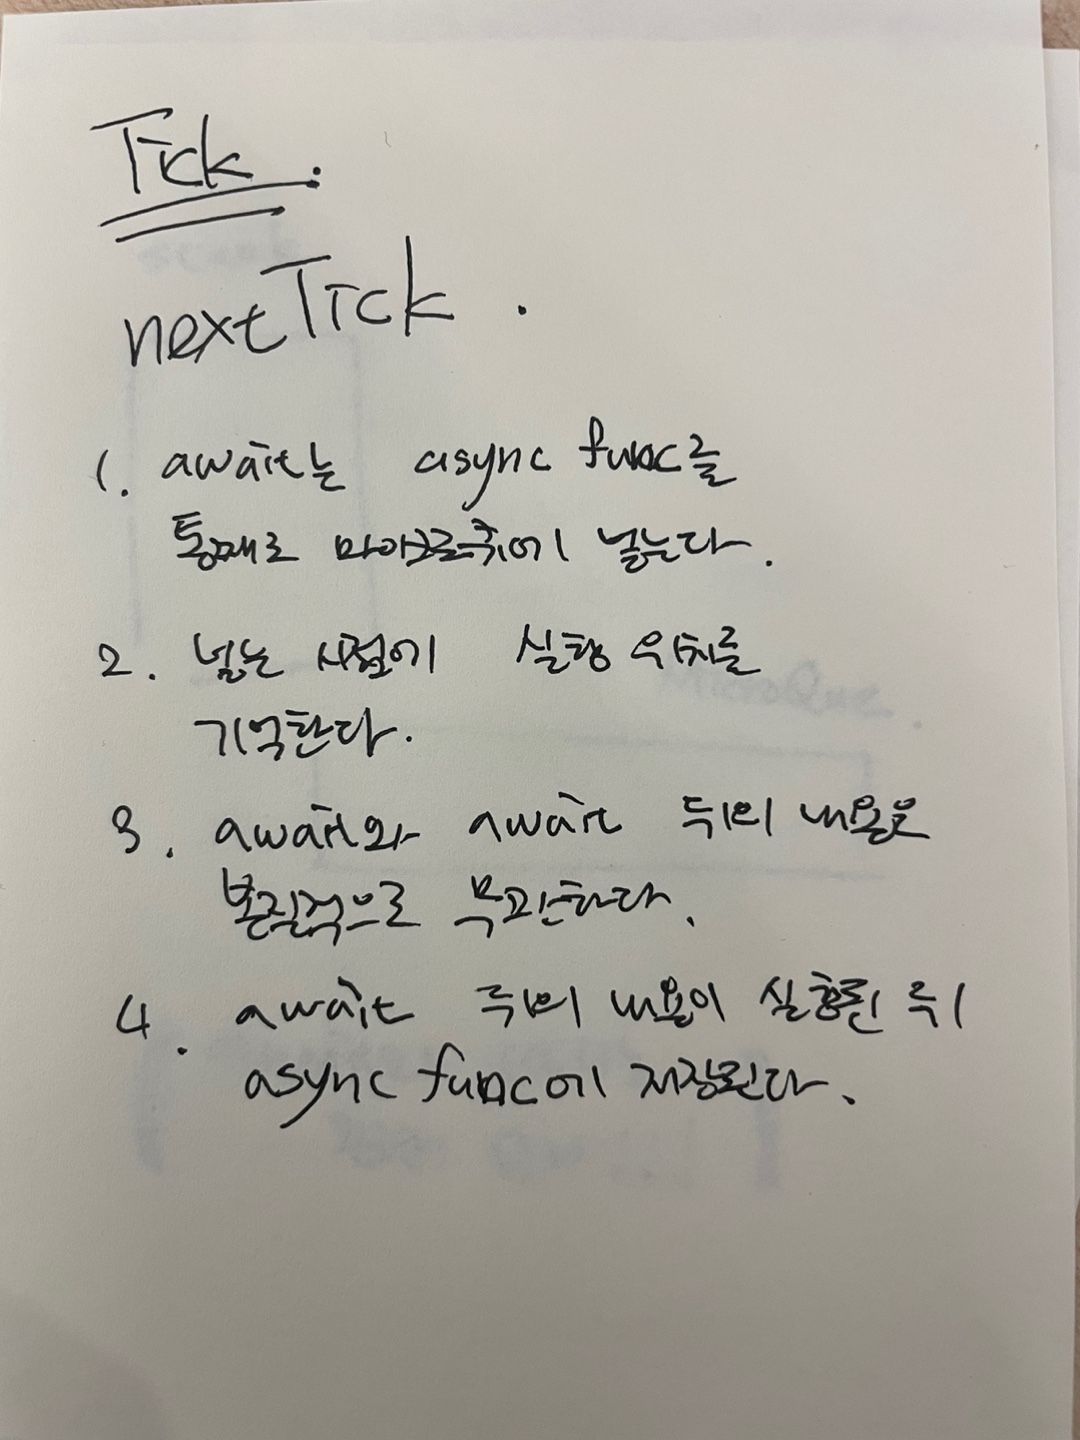 Tick.
nextTick.
1. await는 async func를
통째로 마이크로큐에 넣는다.
2. 넣는 시점에 실행 위치를
기억한다.
3. await와 await 뒤의 내용은
본질적으로 무관하다.
4. await 뒤의 내용이 실행된 뒤
async func에 저장된다.